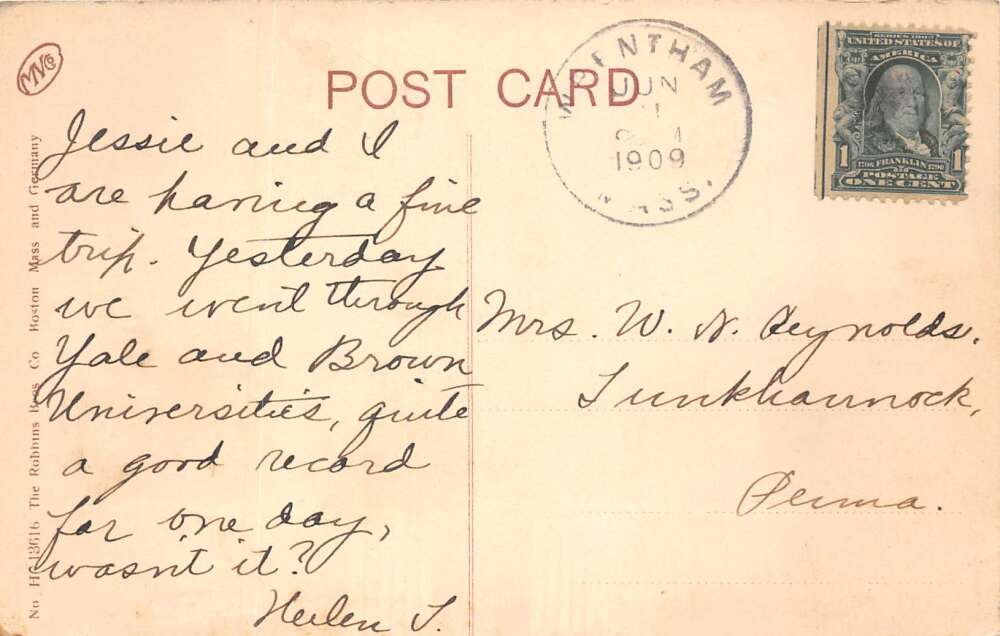 MVCo
POST CARD
WRENTHAM
JUN
1
1909
MASS.
SERIES 1902
UNITED STATES OF
AMERICA
1706 FRANKLIN 1790
1 POSTAGE 1
ONE CENT
Jessie and I
are having a fine
trip. Yesterday
we went through
Yale and Brown
Universities, quite
a good record
for one day,
wasn't it?
Helen T.
Mrs. W. N. Reynolds.
Tunkhannock,
Penna.
No. H 13616 The Robbins Bros Co Boston Mass and Germany